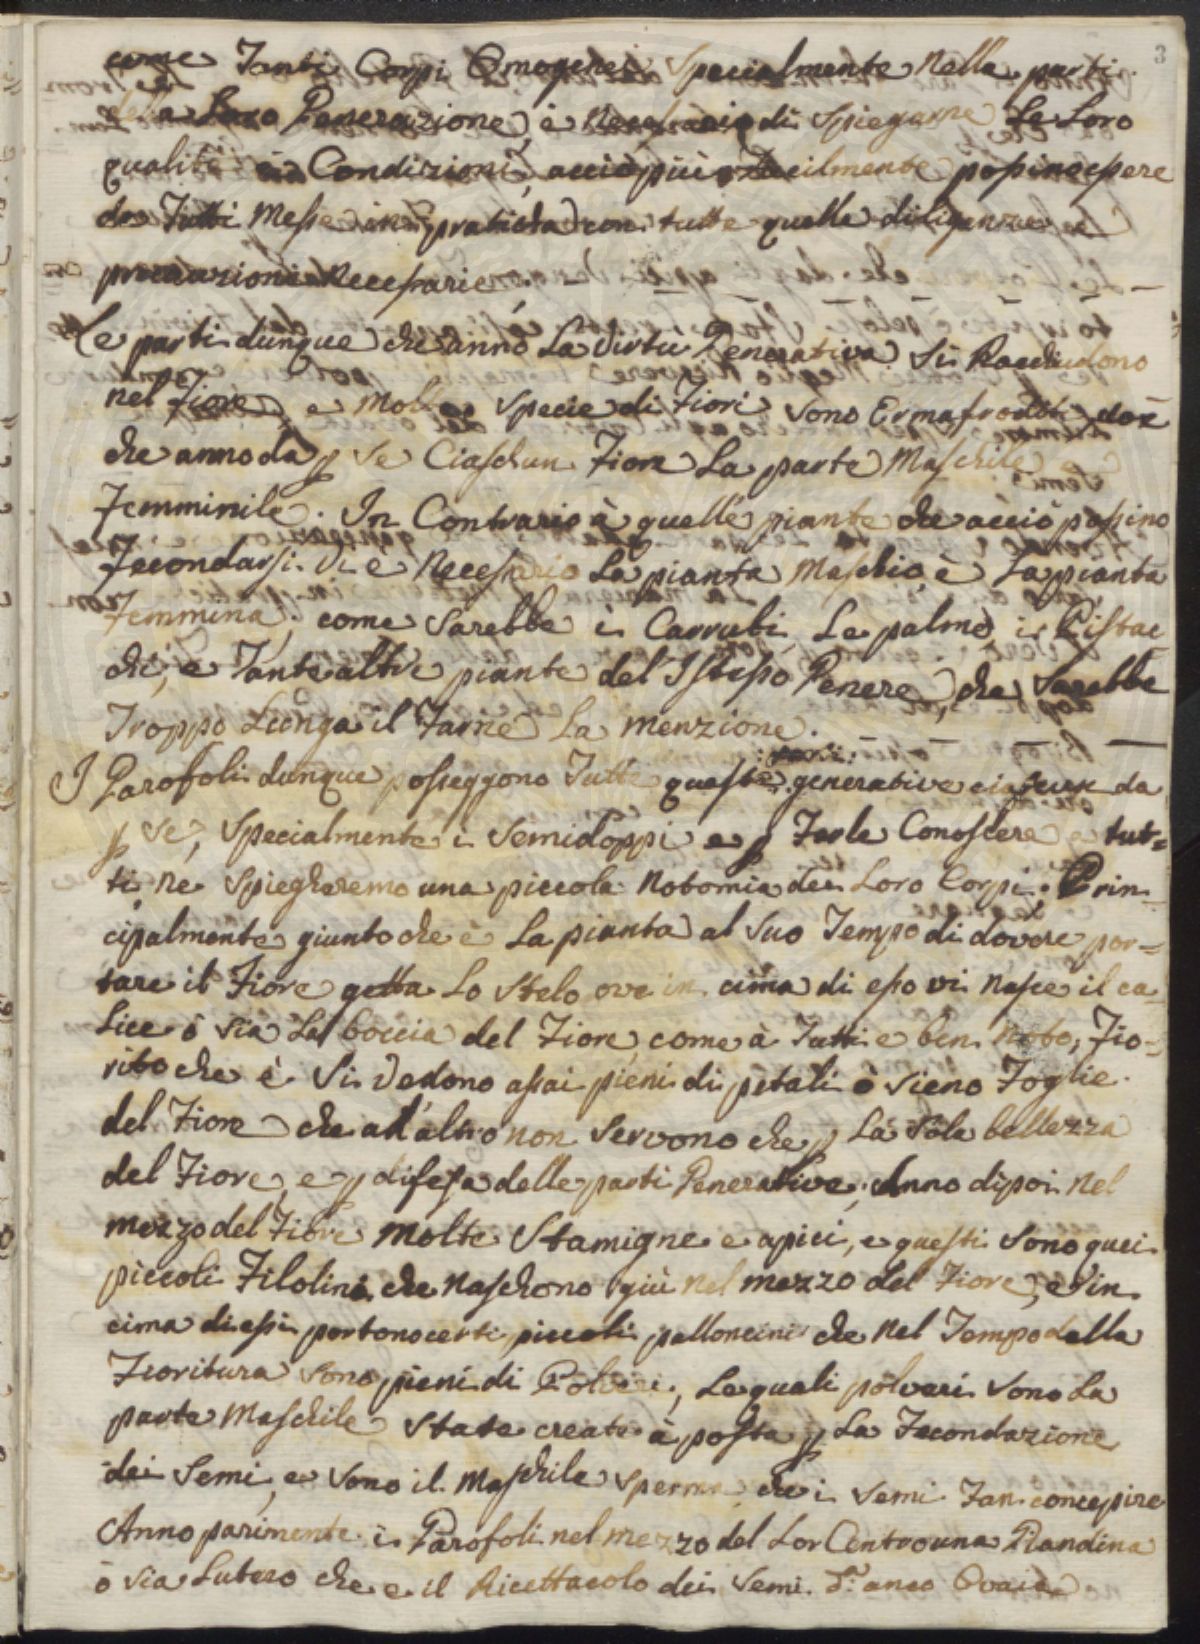 3
come Tanti Corpi Omogenei Specialmente Nella parti
della Loro Generazione, è Necessario di Spiegarne Le Loro
qualità ed Condizioni, acciò più facilmente possino essere
da Tutti Messe in pratticha con tutte quelle diligenze e
precauzioni Necessarie.
Le parti dunque che anno La Virtu Generativa Si Racchiudono
nel Fiore, e Molte Specie di Fiori Sono Ermafroditi, cioè
che anno da p Se Ciaschun Fiore La parte Maschile e
Femminile. In Contrario à quelle piante che acciò possino
Fecondarsi Vi è Necessario La pianta Maschio, è La pianta
Femmina, come Sarebbe i Carrubi, Le palme, i Pistac
chi, e Tante altre piante del Istesso Genere, che Sarebbe
Troppo Lunga il Farne La menzione.
I Garofoli dunque posseggono Tutte queste parti generative ciascun da
p Se, Specialmente i Semidoppi e p Farle Conoscere a tut=
ti ne Spiegheremo una piccola Notomia dei Loro Corpi. Prin
cipalmente giunto che è La pianta al Suo Tempo di dovere por=
tare il Fiore getta Lo Stelo ove in cima di esso vi Nasce il ca
Lice ò Sia La boccia del Fiore, come à Tutti e ben Noto, Fio=
rito che è Si Vedono assai pieni di petali ò Sieno Foglie
del Fiore che ad altro non Servono che p La Sola bellezza
del Fiore, e p difesa delle parti Generative, Anno dipoi Nel
mezzo del Fiore Molte Stamigne e apici, e questi Sono quei
piccoli Filolini che Naschono giù Nel mezzo del Fiore, e in
cima di essi portono certi piccoli palloncini che Nel Tempo della
Fioritura Sono pieni di Polveri, Le quali polveri Sono La
parte Maschile State create à posta p La Fecondazione
dei Semi, e Sono il Maschile Sperma che i Semi Fan concepire
Anno parimente i Garofoli nel mezzo del Lor Centro una Giandina
ò Sia Lutero che e il Ricettacolo dei Semi anco Ovaia